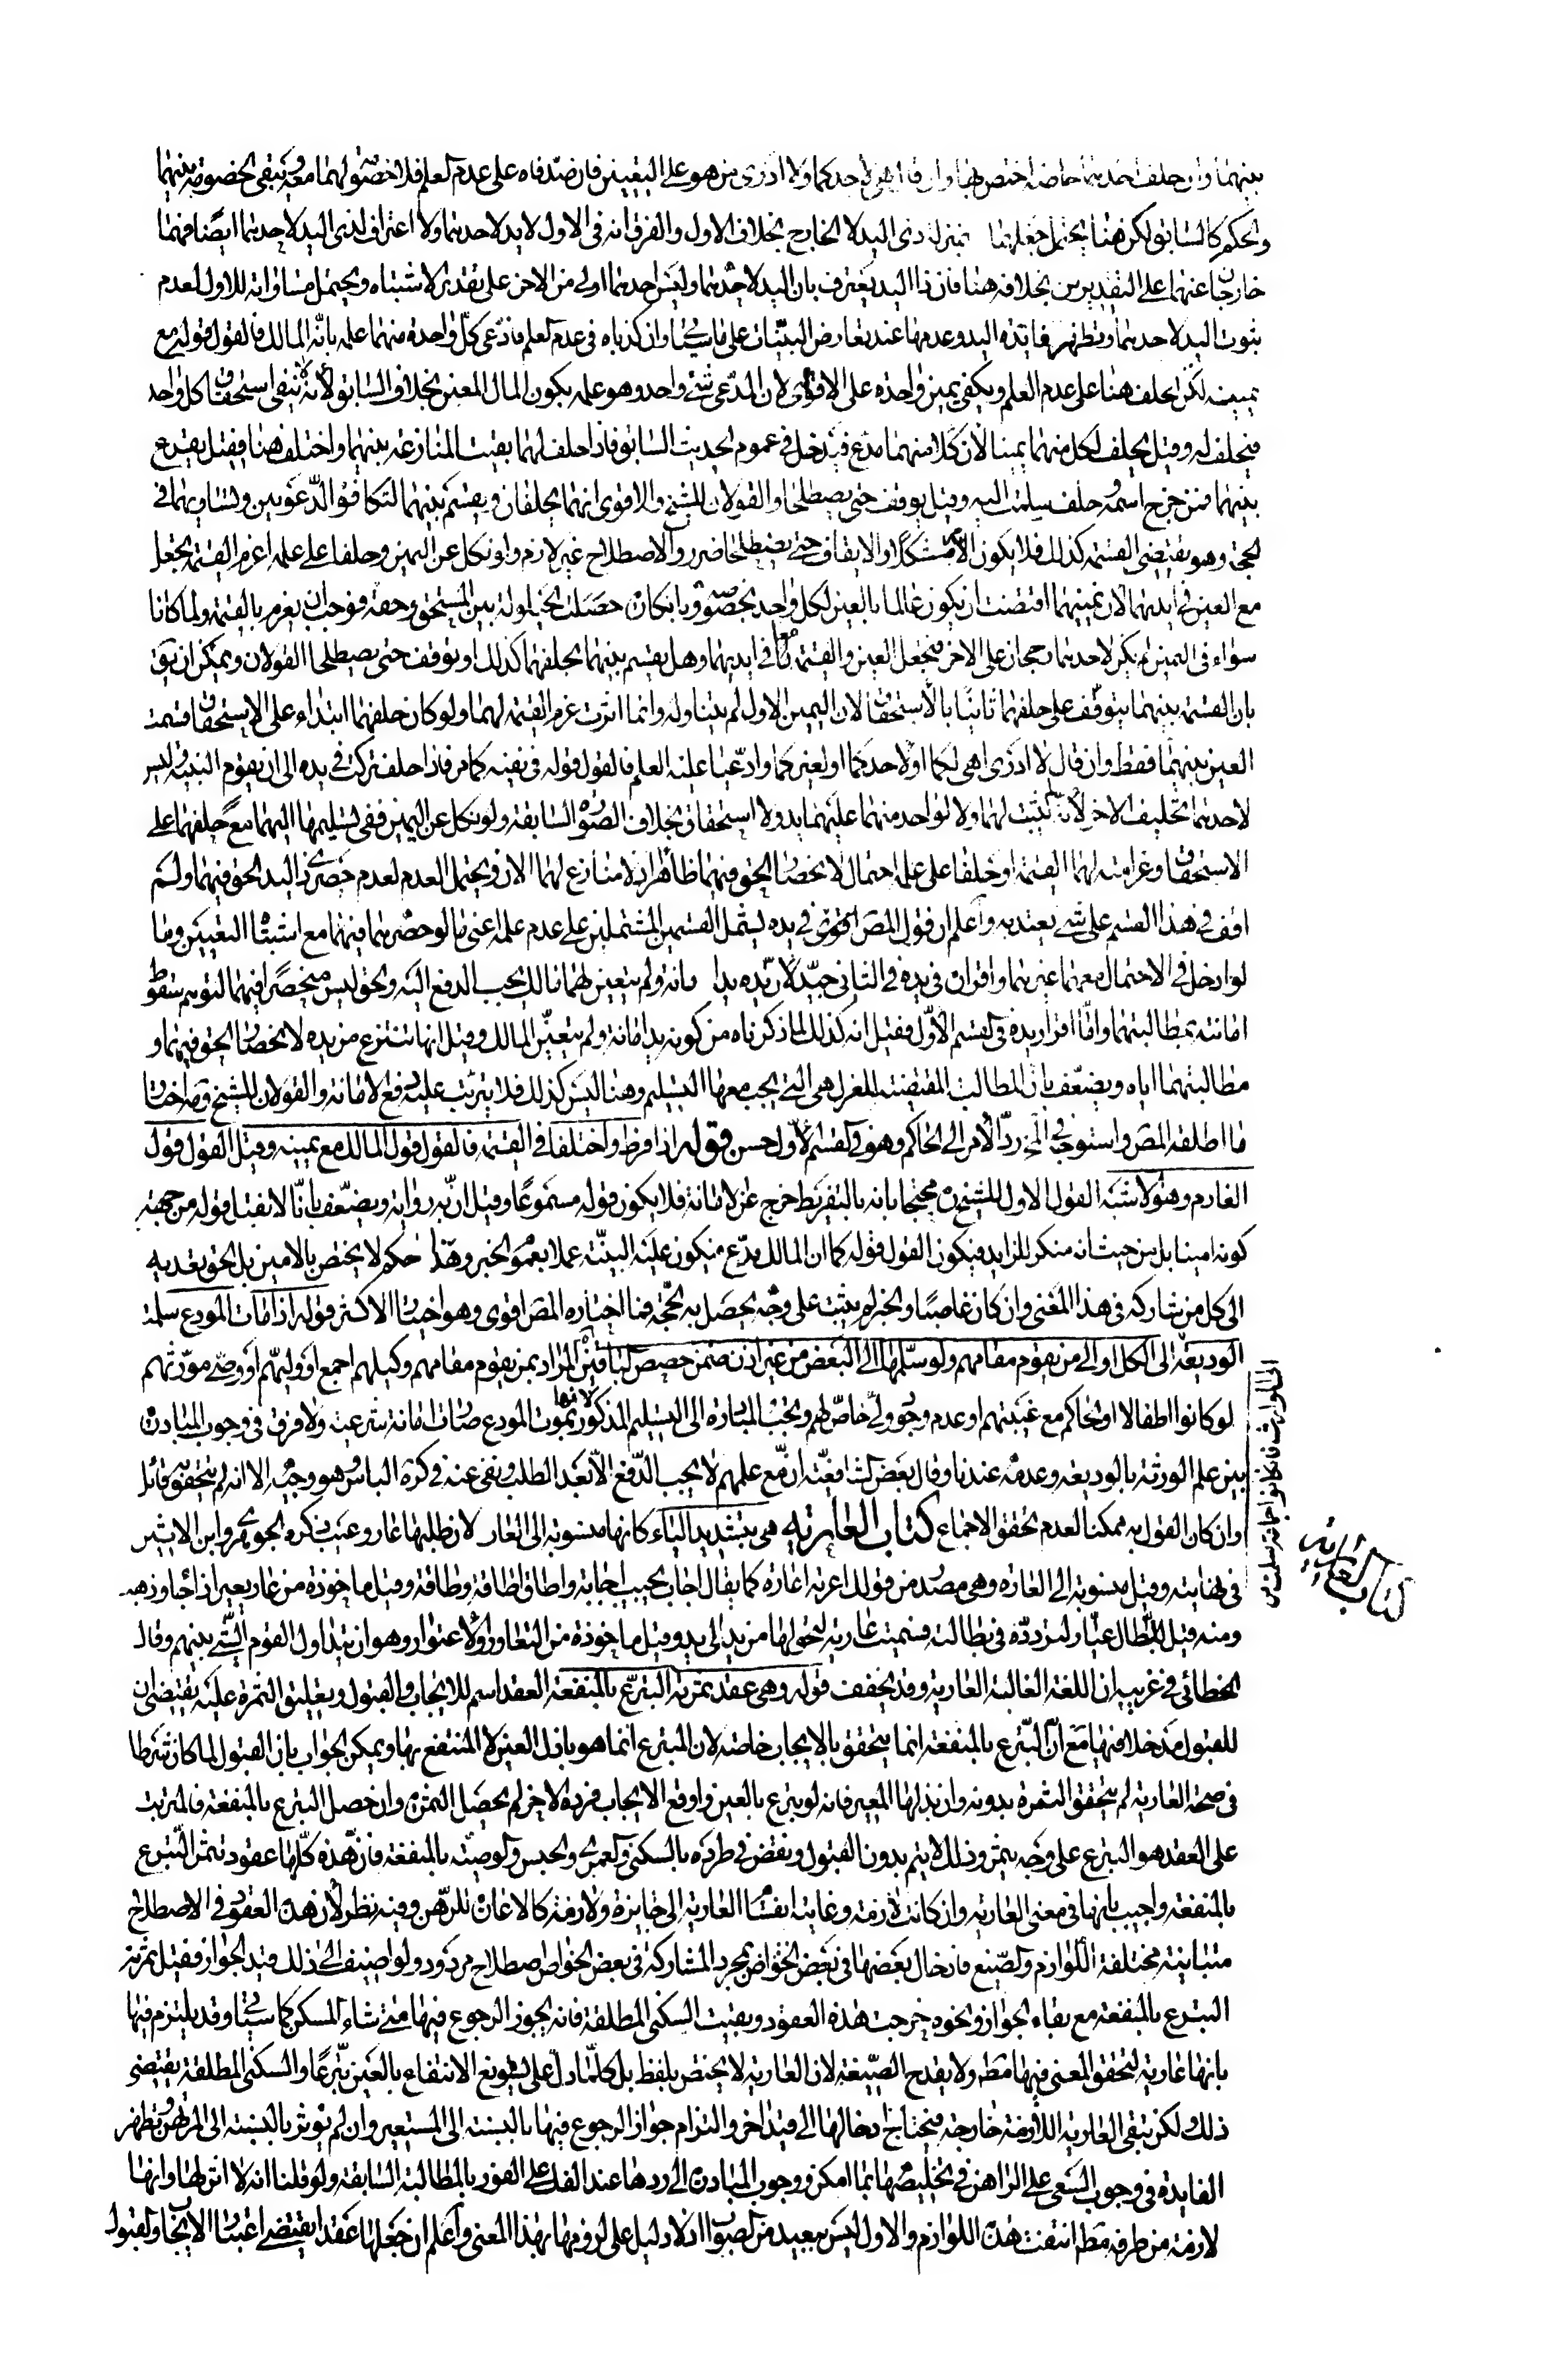 بينهما وان حلف احدهما خاصه اختص بها وان قال هي لاحدكما ولا ادرى من هو على اليقين فان صدقاه على عدم العلم فلا خصومة لهما معه وتبقى الخصومه بينهما
والحكم كالسابق لكن هنا يحتمل جعلهما بمنزلة ذى اليد لا الخارج بخلاف الاول والفرق انه فى الاول لا يد لاحدهما ولا اعتراف لذى اليد لاحدهما ايضا فهما
خارجان عنهما على التقديرين بخلافه هنا فان ذا اليد يعترف بان اليد لاحدهما وليس احدهما اولى من الاخر على تقدير الاشتباه ويحتمل مساواته للاول لعدم
ثبوت اليد لاحدهما وتظهر فائدة اليد وعدمها عند تعارض البينات على ما سيأتي وان كذباه فى عدم العلم فادعى كل واحد منهما علمه بانه المالك فالقول قوله مع
يمينه لكن يحلف هنا على عدم العلم ويكفى يمين واحدة على الاقوى لان المدعى شئ واحد وهو علمه بكون المال المعين بخلاف السابق لانه ينفى استحقاق كل واحد
فيحلف له وقيل يحلف لكل منهما يمينا لان كلا منهما مدع فيدخل فى عموم الحديث السابق فاذا حلف لهما بقيت المنازعه بينهما واختلف هنا فقيل يقرع
بينهما فمن خرج اسمه وحلف سلمت اليه وقيل يوقف حتى يصطلحا والقولان للشيخ والاقوى انهما يحلفان ويقسم بينهما لتكافؤ الدعويين وتساويهما فى
الحجة وهو يقتضى القسمة كذلك فلا يكون الامر مشكلا والايقاف حتى يصطلحا ضرر والاصطلاح غير لازم ولو نكل عن اليمين وحلفا على علمه اغرم القيمة يجعل
مع العين فى ايديهما لان يمينهما اقتضت ان يكون عالما بالعين لكل واحد بخصوصه وبانكاره حصلت الحيلولة بين المستحق وحقه فوجب ان يغرم بالقيمة ولما كانا
سواء فى اليمين لم يكن لاحدهما رجحان على الاخر فيجعل العين والقيمة معا فى ايديهما وهل يقسم بينهما بحلفهما كذلك او توقف حتى يصطلحا القولان ويمكن ان يق
بان القسمة بينهما يتوقف على حلفهما ثانيا بالاستحقاق لان اليمين الاول لم يتناوله وانما اثرت غرم القيمة لهما ولو كان حلفهما ابتداء على الاستحقاق قسمت
العين بينهما فقط وان قال لا ادرى اهى لكما او لاحدكما او لغيركما وادعيا عليه العلم فالقول قوله فى نفيه كما مر فاذا حلف تركت فى يده الى ان يقوم البينة وليس
لاحدهما تحليف الاخر لانه لم يثبت لهما ولا لواحد منهما عليهما يد ولا استحقاق بخلاف الصورة السابقة ولو نكل عن اليمين ففى تسليمها اليهما مع حلفهما على
الاستحقاق وغرامته لهما القيمة لو حلفا على علمه احتمال لانحصار الحق فيهما ظاهرا اذ لا منازع لهما الان ويحتمل العدم لعدم حصر ذى اليد الحق فيهما ولم
اقف فى هذا القسم على شئ يعتد به واعلم ان قول المص اقرت فى يده يشمل القسمين المشتملين على عدم علمه اعنى ما لو حصرهما فيهما مع اشتباه التعيين وما
لو ادخل فى الاحتمال معهما غيرهما واقراره فى يده فى الثانى جيد لان يده يد امانه ولم يتعين لهما مالك يجب الدفع اليه والحق ليس منحصرا فيهما لتوهم سقوط
امانته بمطالبتهما واما اقرار يده فى القسم الاول فقيل انه كذلك لما ذكرناه من كونه يد امانة ولم يتعين المالك وقيل انها تنتزع من يده لانحصار الحق فيهما و
مطالبتهما اياه ويضعف بان المطالبة المقتضية للعزل هى التى يجب معها التسليم وهنا ليس كذلك فلا يترتب عليه رفع الامانة والقولان للشيخ وقد اختار
ما اطلقه المص واستوجه فى لخ رد الامر الى الحاكم وهو فى القسم الاول حسن قوله اذا فرط واختلفا فى القيمة فالقول قول المالك مع يمينه وقيل القول قول
الغارم وهو الاشبه القول الاول للشيخ محتجا بانه بالتفريط خرج عن الامانة فلا يكون قوله مسموعا وقيل انه رواية ويضعف بانا لا نقبل قوله من جهة
كونه امينا بل من حيث انه منكر للزايد فيكون القول قوله كما ان المالك مدع فيكون عليه البينة عملا بعموم الخبر وهذا حكم لا يختص بالامين بل الحق تعديه
الى كل من شاركه فى هذا المعنى وان كان غاصبا والخبر لم يثبت على وجه يحصل به الحجة فما اختاره المص اقوى وهو اختيار الاكثر قوله اذا مات المودع سلمت
الوديعة الى الكل او الى من يقوم مقامهم ولو سلمها الى البعض من غير اذن ضمن حصص الباقين المراد بمن يقوم مقامهم وكيلهم اجمع او وليهم او وصى مورثهم
لو كانوا اطفالا او الحاكم مع غيبتهم او عدم وجود ولى خاص لهم ويجب المبادرة الى التسليم المذكور لانها بموت المودع صارت امانة شرعية ولا فرق فى وجوب المبادرة
بين علم الورثة بالوديعة وعدمه عندنا وقال بعض الشافعية ان مع علمهم لا يجب الدفع الا بعد الطلب ونفى عنه فى كرة الباس وهو وجه الا انه لم يتحقق به قائل
وان كان القول به ممكنا لعدم تحقق الاجماع كتاب العارية هى بتشديد الياء كانها منسوبة الى العار لان طلبها عار وعيب ذكره الجوهرى وابن الاثير
فى نهايته وقيل منسوبة الى العارة وهى مصدر من قولك اعرته اعارة كما يقال اجاب يجيب اجابة واطاق اطاقة وطاقة وقيل ماخوذة من عار يعير اذا جاء وذهب
ومنه قيل للبطال عيار لتردده فى بطالته فسميت عارية لتحولها من يد الى يد وقيل ماخوذة من التعاور والاعتوار وهو ان يتداول القوم الشئ بينهم وقال
الخطائى فى غريبه ان اللغة الغالبة العارية وقد يخفف قوله وهى عقد ثمرته التبرع بالمنفعة العقد اسم للايجاب والقبول وتعليق الثمرة عليه يقتضى ان
للقبول مدخلا فيها مع ان التبرع بالمنفعة انما يتحقق بالايجاب خاصة لان المتبرع انما هو باذل العين لا المنتفع بها ويمكن الجواب بان القبول لما كان شرطا
فى صحة العارية لم يتحقق الثمرة بدونه وان بذلها المعير فانه لو تبرع بالعين واوقع الايجاب فرده الاخر لم يحصل الثمرة وان حصل التبرع بالمنفعة فالمترتب
على العقد هو التبرع على وجه يثمر وذلك لا يتم بدون القبول ونقض فى طرده بالسكنى والعمرى والحبس والوصية بالمنفعة فان هذه كلها عقود تثمر التبرع
بالمنفعة واجيب بانها فى معنى العارية وان كانت لازمة وغايته انقسام العارية الى جايزة ولازمة كالاعارة للرهن وفيه نظر لان هذه العقود فى الاصطلاح
متباينة مختلفة اللوازم والصيغ فادخال بعضها فى بعض الخواص بمجرد المشاركة فى بعض الخواص اصطلاح مردود ولو اضيف الى ذلك قيد الجواز فقيل ثمرته
التبرع بالمنفعة مع بقاء الجواز ونحوه خرجت هذه العقود وبقيت السكنى المطلقة فانه يجوز الرجوع فيها متى شاء المسكن كما سيأتي وقد يلتزم فيها
بانها عارية لتحقق المعنى فيها مط ولا يقدح الصيغة لان العارية لا يختص بلفظ بل كلما دل على تسويغ الانتفاع بالعين تبرعا والسكنى المطلقة يقتضى
ذلك ولكن تبقى العارية اللازمة خارجة فيحتاج ادخالها الى قيد اخر والتزام جواز الرجوع فيها بالنسبة الى المستعير وان لم يوثر بالنسبة الى المرتهن وتظهر
الفايدة فى وجوب السعى على الراهن فى تخليصها بما امكن ووجوب المبادرة الى ردها عند الفك على الفور بالمطالبة السابقة ولو قلنا انه لا اثر لها وانها
لازمة من طرفه مط انتفت هذه اللوازم والاول ليس ببعيد من الصواب اذ لا دليل على لزومها بهذا المعنى واعلم ان جعلها عقدا يقتضى اعتبار الايجاب والقبول
كتاب العارية